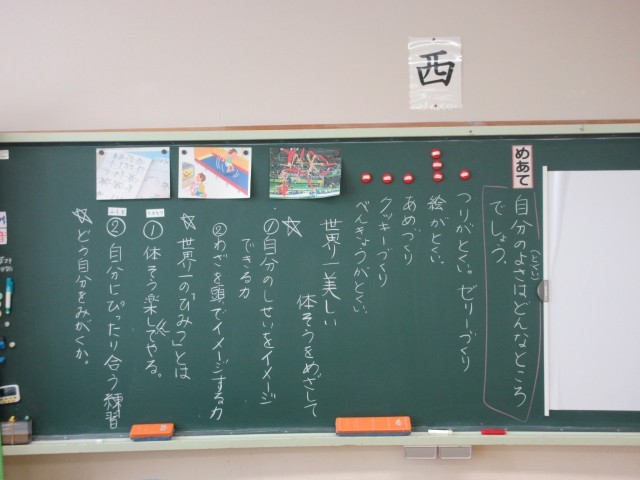 西
めあて
自分のよさはどんなところ
(とくい)
でしょう。
つりがとくい。ゼリーづくり
絵がとくい
あめづくり
クッキーづくり
べんきょうがとくい。
世界一美しい
体そうをめざして
☆
①自分のしせいをイメージ
できる力
②わざを頭でイメージする力
☆世界一の「ひみつ」とは
① 体そう楽しんでやる。
② 自分にぴったり合う練習
☆どう自分をみがくか。